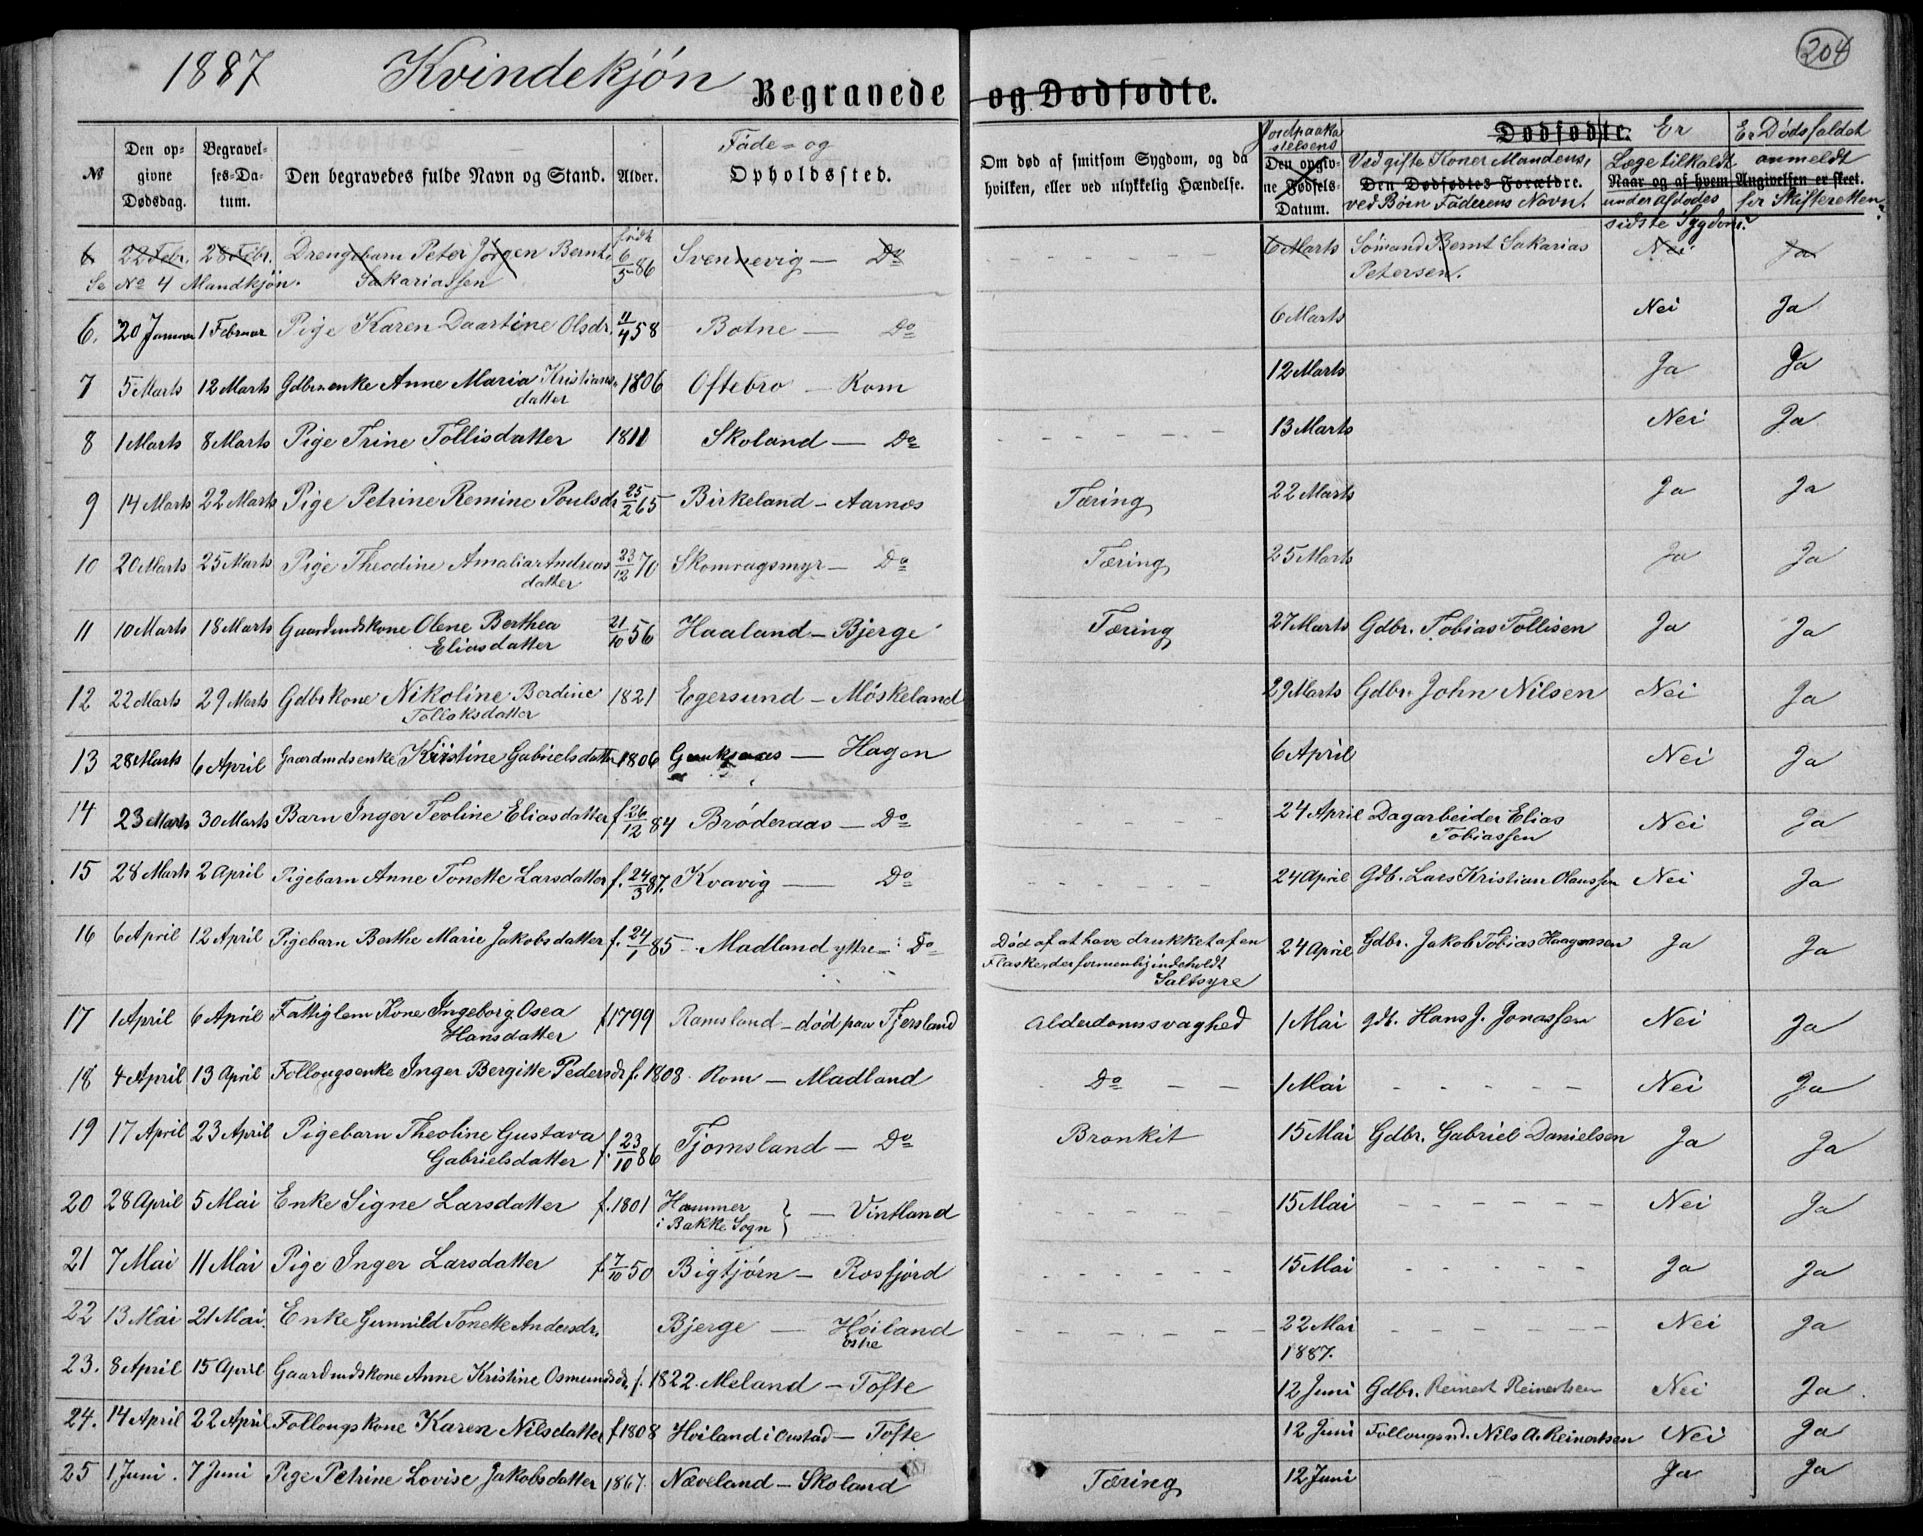 1887 Kvindekjøn Begravede og Dødfødte. 204
№ | Den opgivne Dødsdag. | Begravelses-Datum. | Den begravedes fulde Navn og Stand. | Alder. | Føde- og Opholdssted. | Om død af smitsom Sygdom, og da hvilken, eller ved ulykkelig Hændelse. | Jordpaakastelsens Den opgivne Fødsels-Datum. | Dødfødte. Ved gifte Koner Mandens, Den Dødfødtes Forældre. ved Børn Faderens Navn. | Er Læge tilkaldt Naar og af hvem under afdødes sidste Sygdom? | Er Dødsfaldet anmeldt Angivelsen er skeet. for Skifteretten?
6 | 22 Febr. | 28 Febr. | Drengebarn Peter Jørgen Bernt Sakariassen | født 6/5 86 | Svennevig — Do | - - - - - - | 6 Marts | Sømand Bernt Sakarias Petersen. | Nei | Ja
Se No 4 Mandkjøn.
6. | 20 Januar | 1 Februar | Pige Karen Daartine Olsdr. | 11/4 58 | Botne — Do | | 6 Marts | | Nei | Ja
7 | 5 Marts | 12 Marts | Gdbr.enke Anne Maria Kristiansdatter | 1806 | Oftebro — Rom | | 12 Marts | | Ja | Ja
8 | 1 Marts | 8 Marts | Pige Trine Tollisdatter | 1811 | Skoland — Do | - - - - - - | 13 Marts | | Nei | Ja
9 | 14 Marts | 22 Marts | Pige Petrine Remine Poulsdr | 25/2 65 | Birkeland — Aarnes | Tæring | 22 Marts | | Ja | Ja
10 | 20 Marts | 25 Marts | Pige Theodine Amalia Andreasdatter | 23/12 70 | Skomragsmyr — Do | Tæring | 25 Marts | | Ja | Ja
11 | 10 Marts | 18 Marts | Gaardmdskone Olene Berthea Eliasdatter | 21/10 56 | Haaland — Bjerge | Tæring | 27 Marts | Gdbr. Tobias Tollisen | Ja | Ja
12 | 22 Marts | 29 Marts | Gdbrkone Nikoline Berdine Tollaksdatter | 1821 | Egersund — Møskeland | | 29 Marts | Gdbr. John Nilsen | Nei | Ja
13 | 28 Marts | 6 April | Gaardmdsenke Kristine Gabrielsdatter | 1806 | — Hagen | | 6 April | | Nei | Ja
14 | 23 Marts | 30 Marts | Barn Inger Teoline Eliasdatter | f 26/12 84 | Brøderaas — Do | - - - - - | 24 April | Dagarbeider Elias Tobiassen | Nei | Ja
15 | 28 Marts | 2 April | Pigebarn Anne Tonette Larsdatter | f. 24/3 87. | Kvavig — Do | - - - - - | 24 April | Gdb. Lars Kristian Olaussen | Nei | Ja
16 | 6 April | 12 April | Pigebarn Berthe Marie Jakobsdatter | f. 24/1 85 | Madland yttre — Do | Død af at have drukket af en Flaske, der formentlig indeholdt Saltsyre | 24 April | Gdbr. Jakob Tobias Haagensen | Ja | Ja
17 | 1 April | 6 April | Fattiglem Kone Ingeborg Osea Hansdatter | f 1799 | Ramsland — død paa Tjersland | Alderdomssvaghed | 1 Mai | Gdb. Hans J. Jonassen | Nei | Ja
18 | 4 April | 13 April | Follougsenke Inger Bergitte Pedersdr | f. 1808 | Rom — Madland | Do - - | 1 Mai | - - - - - | Nei | Ja
19 | 17 April | 23 April | Pigebarn Theoline Gustava Gabrielsdatter | f. 23/10 86 | Tjomsland — Do | Bronkit | 15 Mai | Gdbr. Gabriel Danielsen | Ja | Ja
20 | 28 April | 5 Mai | Enke Signe Larsdatter | f. 1801 | Hammer i Bakke Sogn } — Vintland | - - - - - - | 15 Mai | - - - - - - | Nei | Ja
21 | 7 Mai | 11 Mai | Pige Inger Larsdatter | f. 7/10 50 | Bigtjørn — Rosfjord | - - - - - - | 15 Mai | - - - - - | Ja | Ja
22 | 13 Mai | 21 Mai. | Enke Gunnild Tonette Andersdr. | | Bjerge — Høiland Østre | - - - - - - - | 22 Mai 1887. | - - - - - - | Nei | Ja
23. | 8 April | 15 April | Gaardmdskone Anne Kristine Osmundsdr. | f. 1822. | Meland — Tofte | | 12 Juni | Gdbr. Reinert Reinertsen | Nei | Ja
24. | 14 April | 22 April | Follougskone Karen Nilsdatter | f 1808 | Høiland i Austad — Tofte | | 12 Juni | Follougsmd. Nils A. Reinertsen | Nei | Ja
25 | 1 Juni. | 7 Juni | Pige Petrine Lovise Jakobsdatter | 1867. | Næveland — Skoland | Tæring | 12 Juni | | Ja | Ja